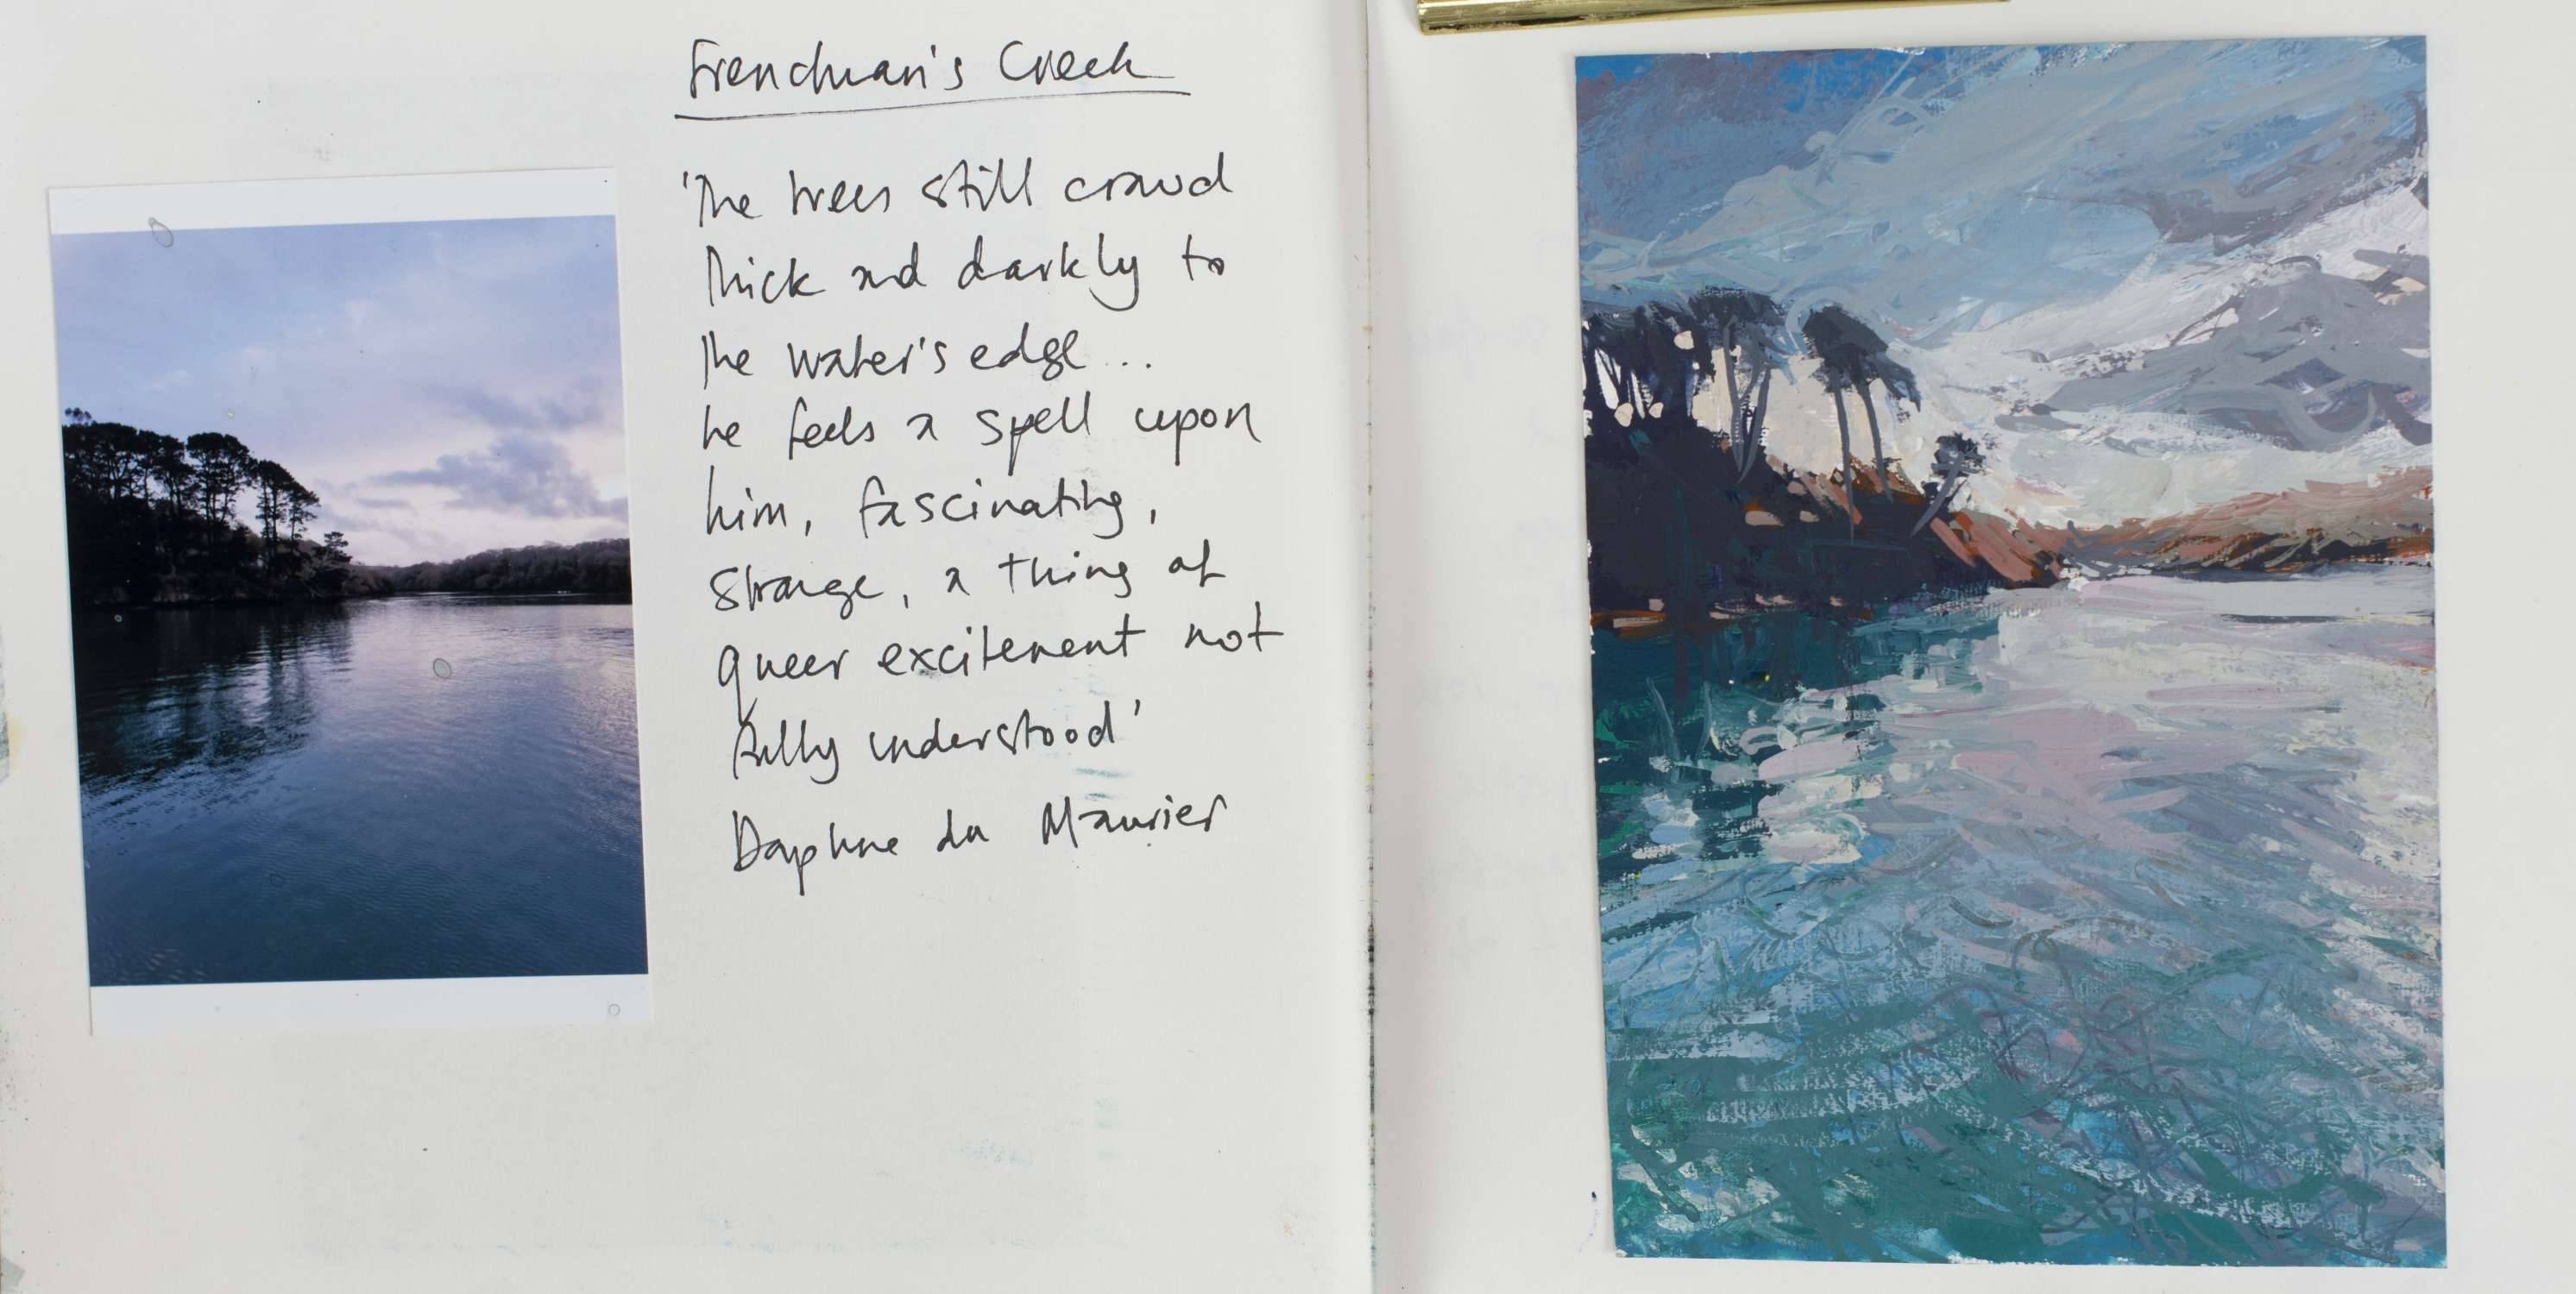 Frenchman's Creek
'The trees still crowd
thick and darkly to
the water's edge...
he feels a spell upon
him, fascinating,
strange, a thing of
queer excitement not
fully understood'
Daphne du Maurier